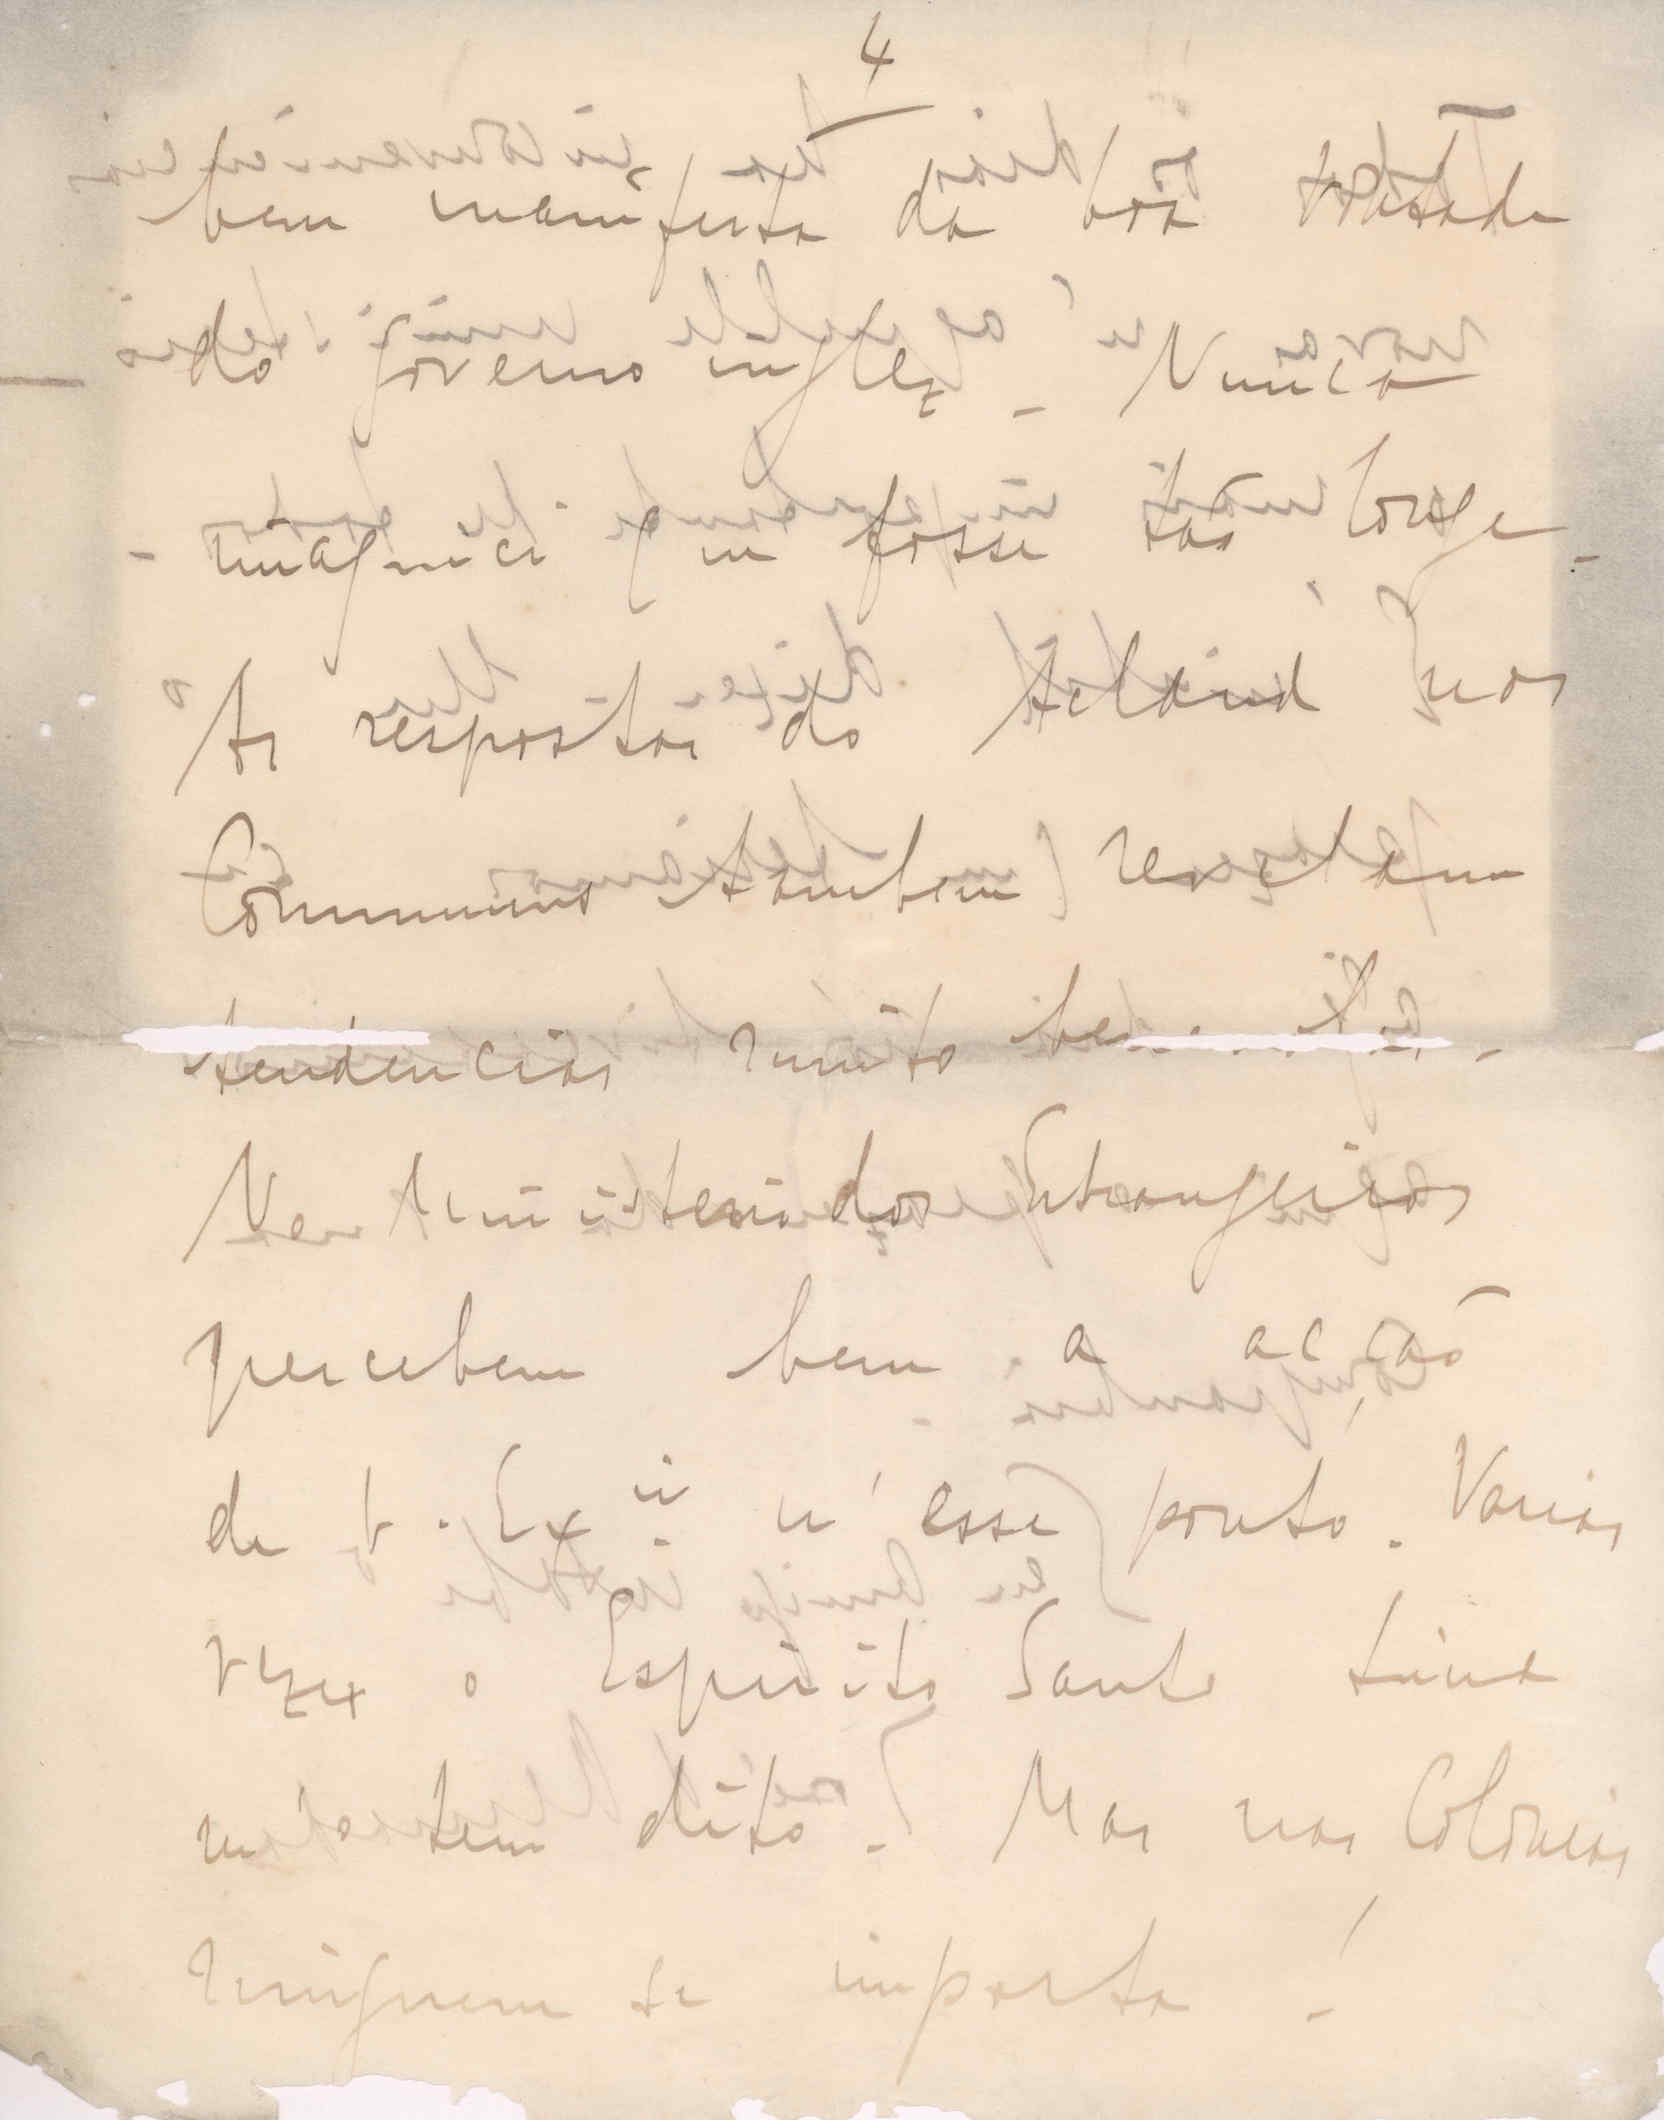 4
bem manifesta da boa vontade
do governo inglez. Nunca
imaginei que fosse tão longe.
As respostas do Acland nos
Communs tambem revelam
tendencias muito
No Ministerio dos Estrangeiros
percebem bem a acção
de V. Ex.ª n'esse ponto. Varias
vezes o Espirito Santo Lima
m'o tem dito. Mas nas Colonias
ninguem se importa!